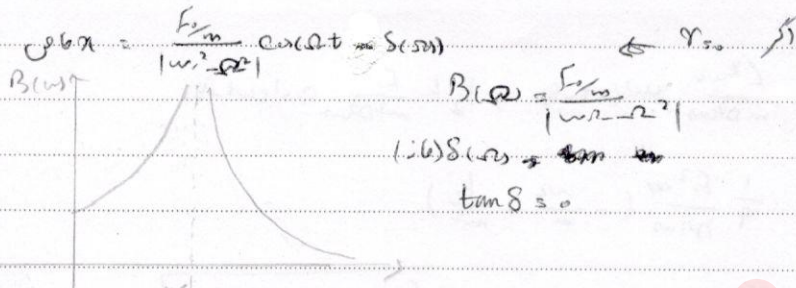 x = \frac{F_0/m}{|ω_0^2 - Ω^2|} Cos(Ωt - δ(Ω)) ⇐ γ=0
B(ω)
B(Ω) = \frac{F_0/m}{|ω_0^2 - Ω^2|}
δ(Ω)
tan δ = 0